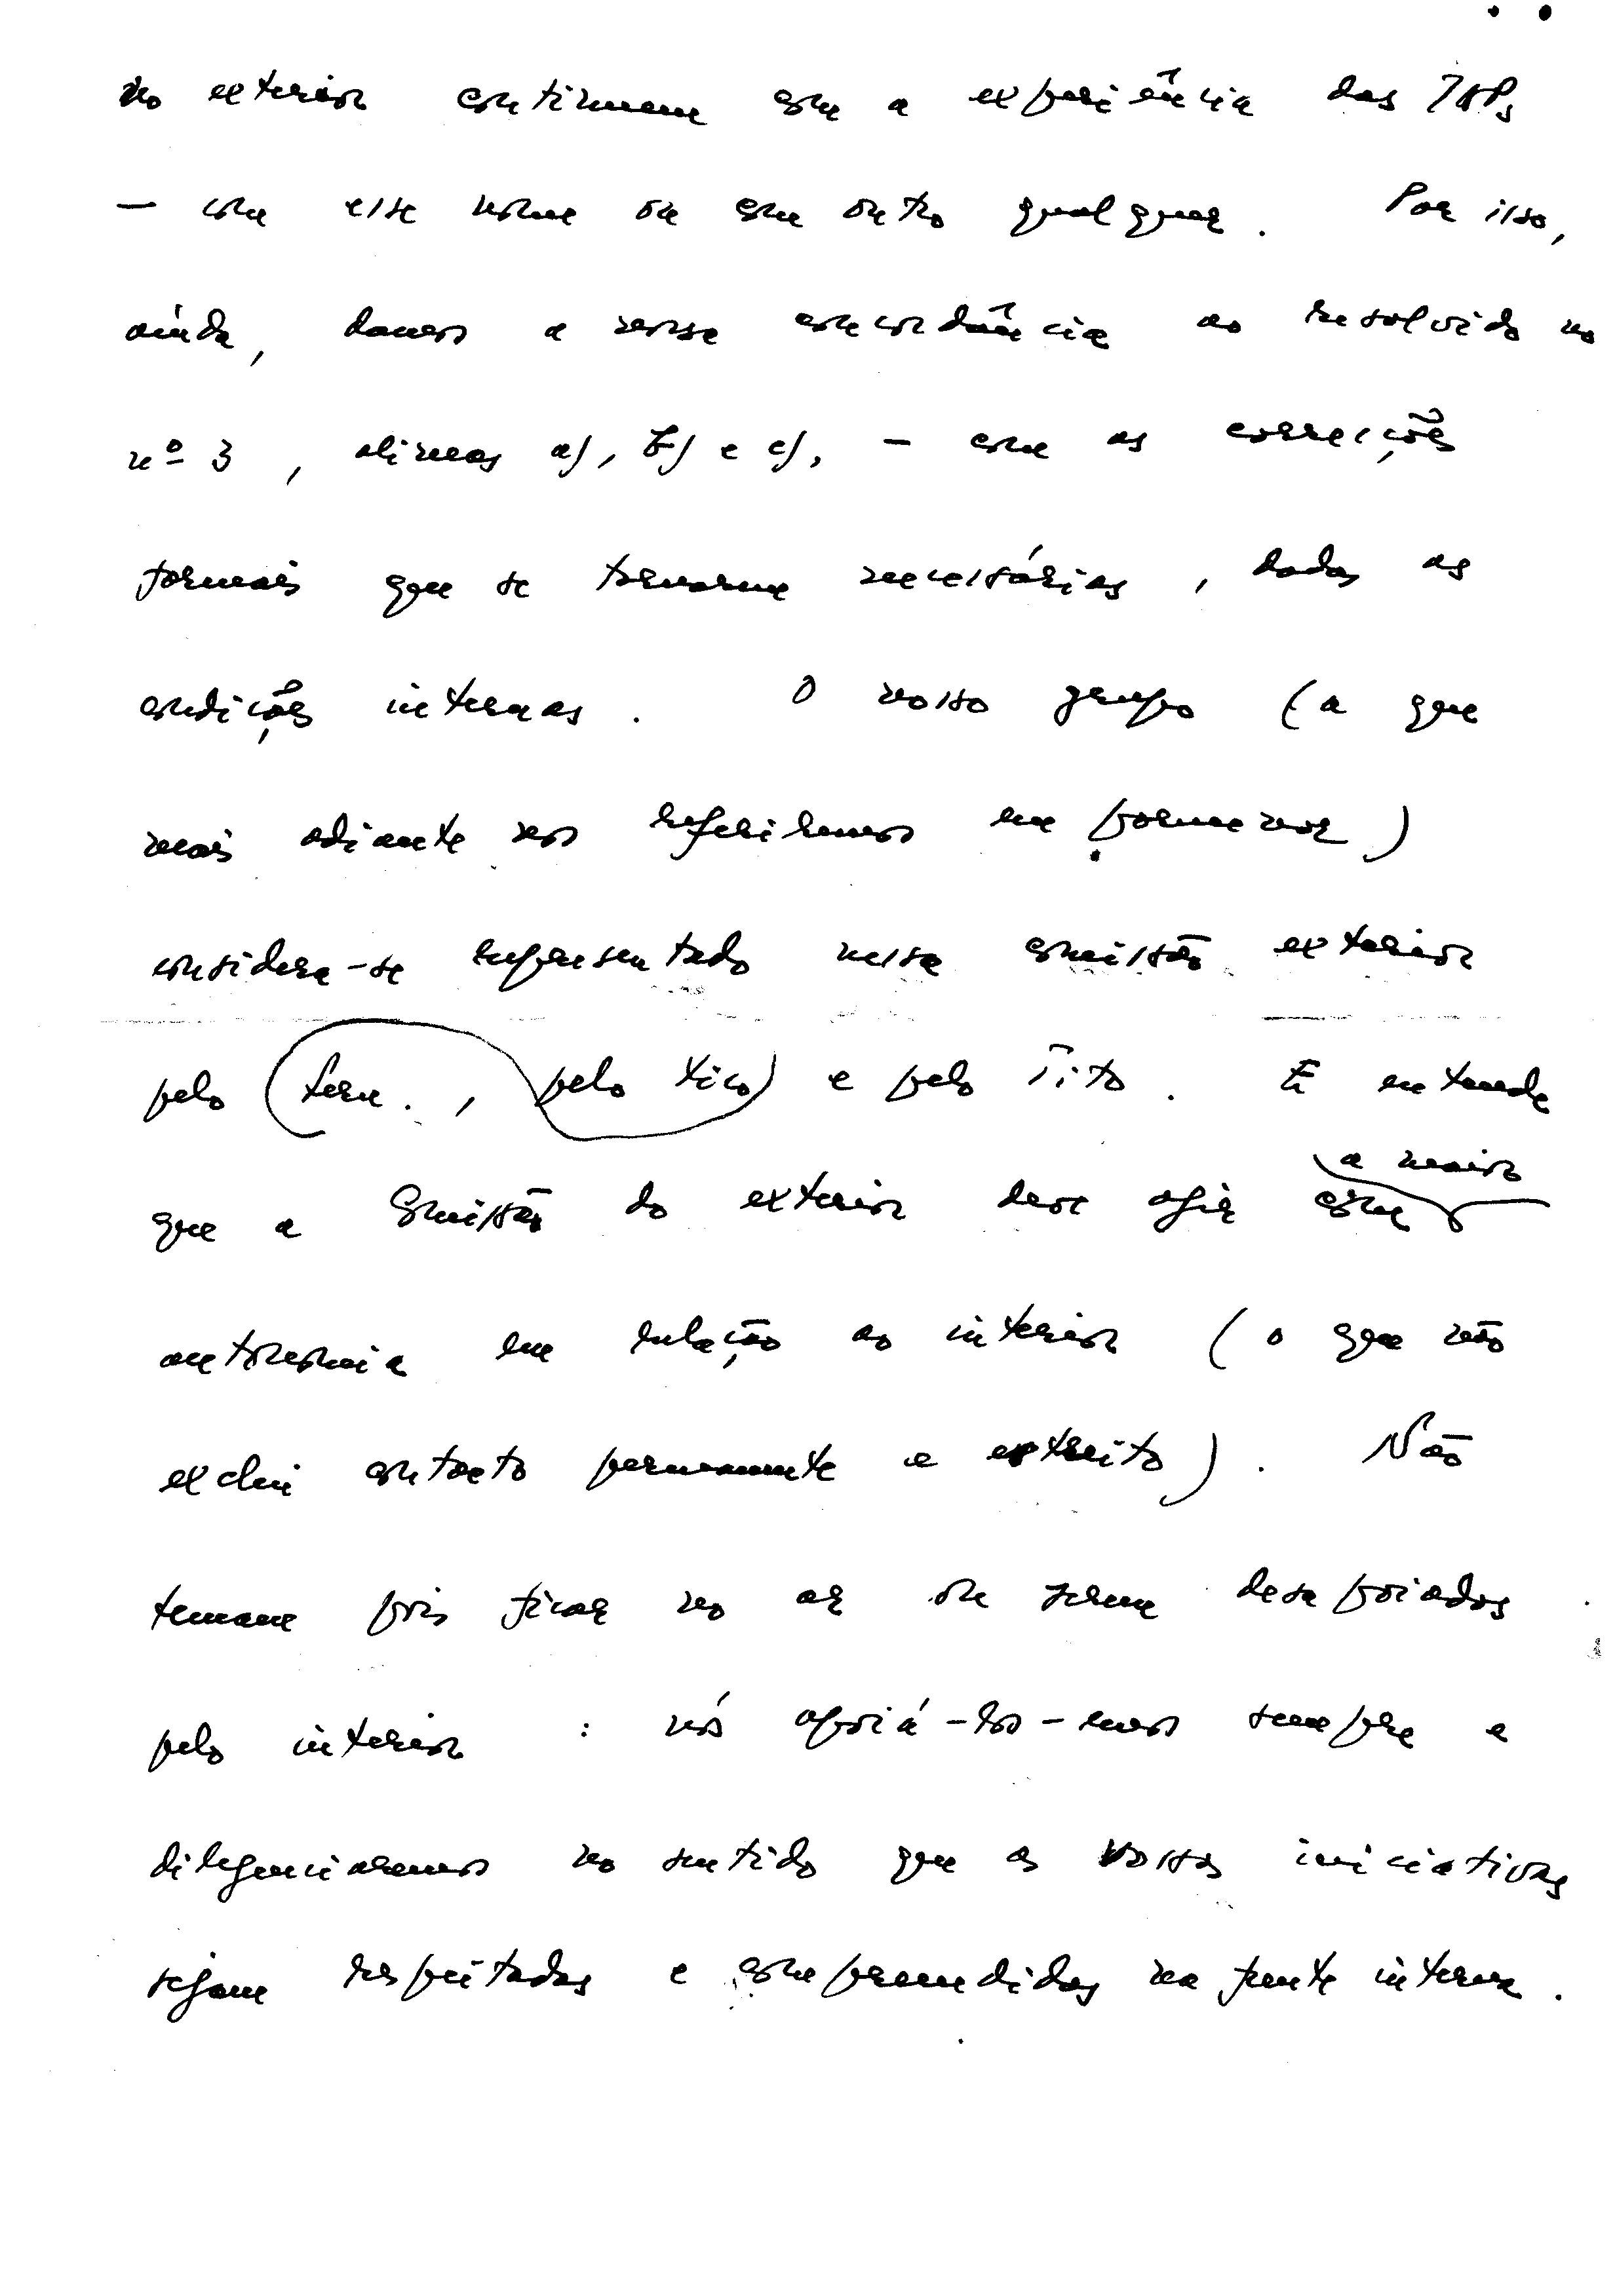 no exterior continuem com a experiência das JAPs
– com esse nome ou com outro qualquer. Por isso,
ainda, damos a nossa concordância ao resolvido no
nº 3, alíneas a), b) e c), – com as correcções
formais que se tornarem necessárias, dadas as
condições internas. O nosso grupo (a que
mais adiante nos referiremos em pormenor)
considera-se representado nessa comissão exterior
pelo (Fern., pelo tico) e pelo Tito. E entende
que a Comissão do exterior deve agir com a maior
autonomia em relação ao interior (o que não
exclui contacto permanente e estreito). Não
temam pois ficar no ar ou serem desapoiados
pelo interior: nós apoiá-los-emos sempre e
diligenciaremos no sentido que as vossas iniciativas
sejam respeitadas e compreendidas na frente interna.